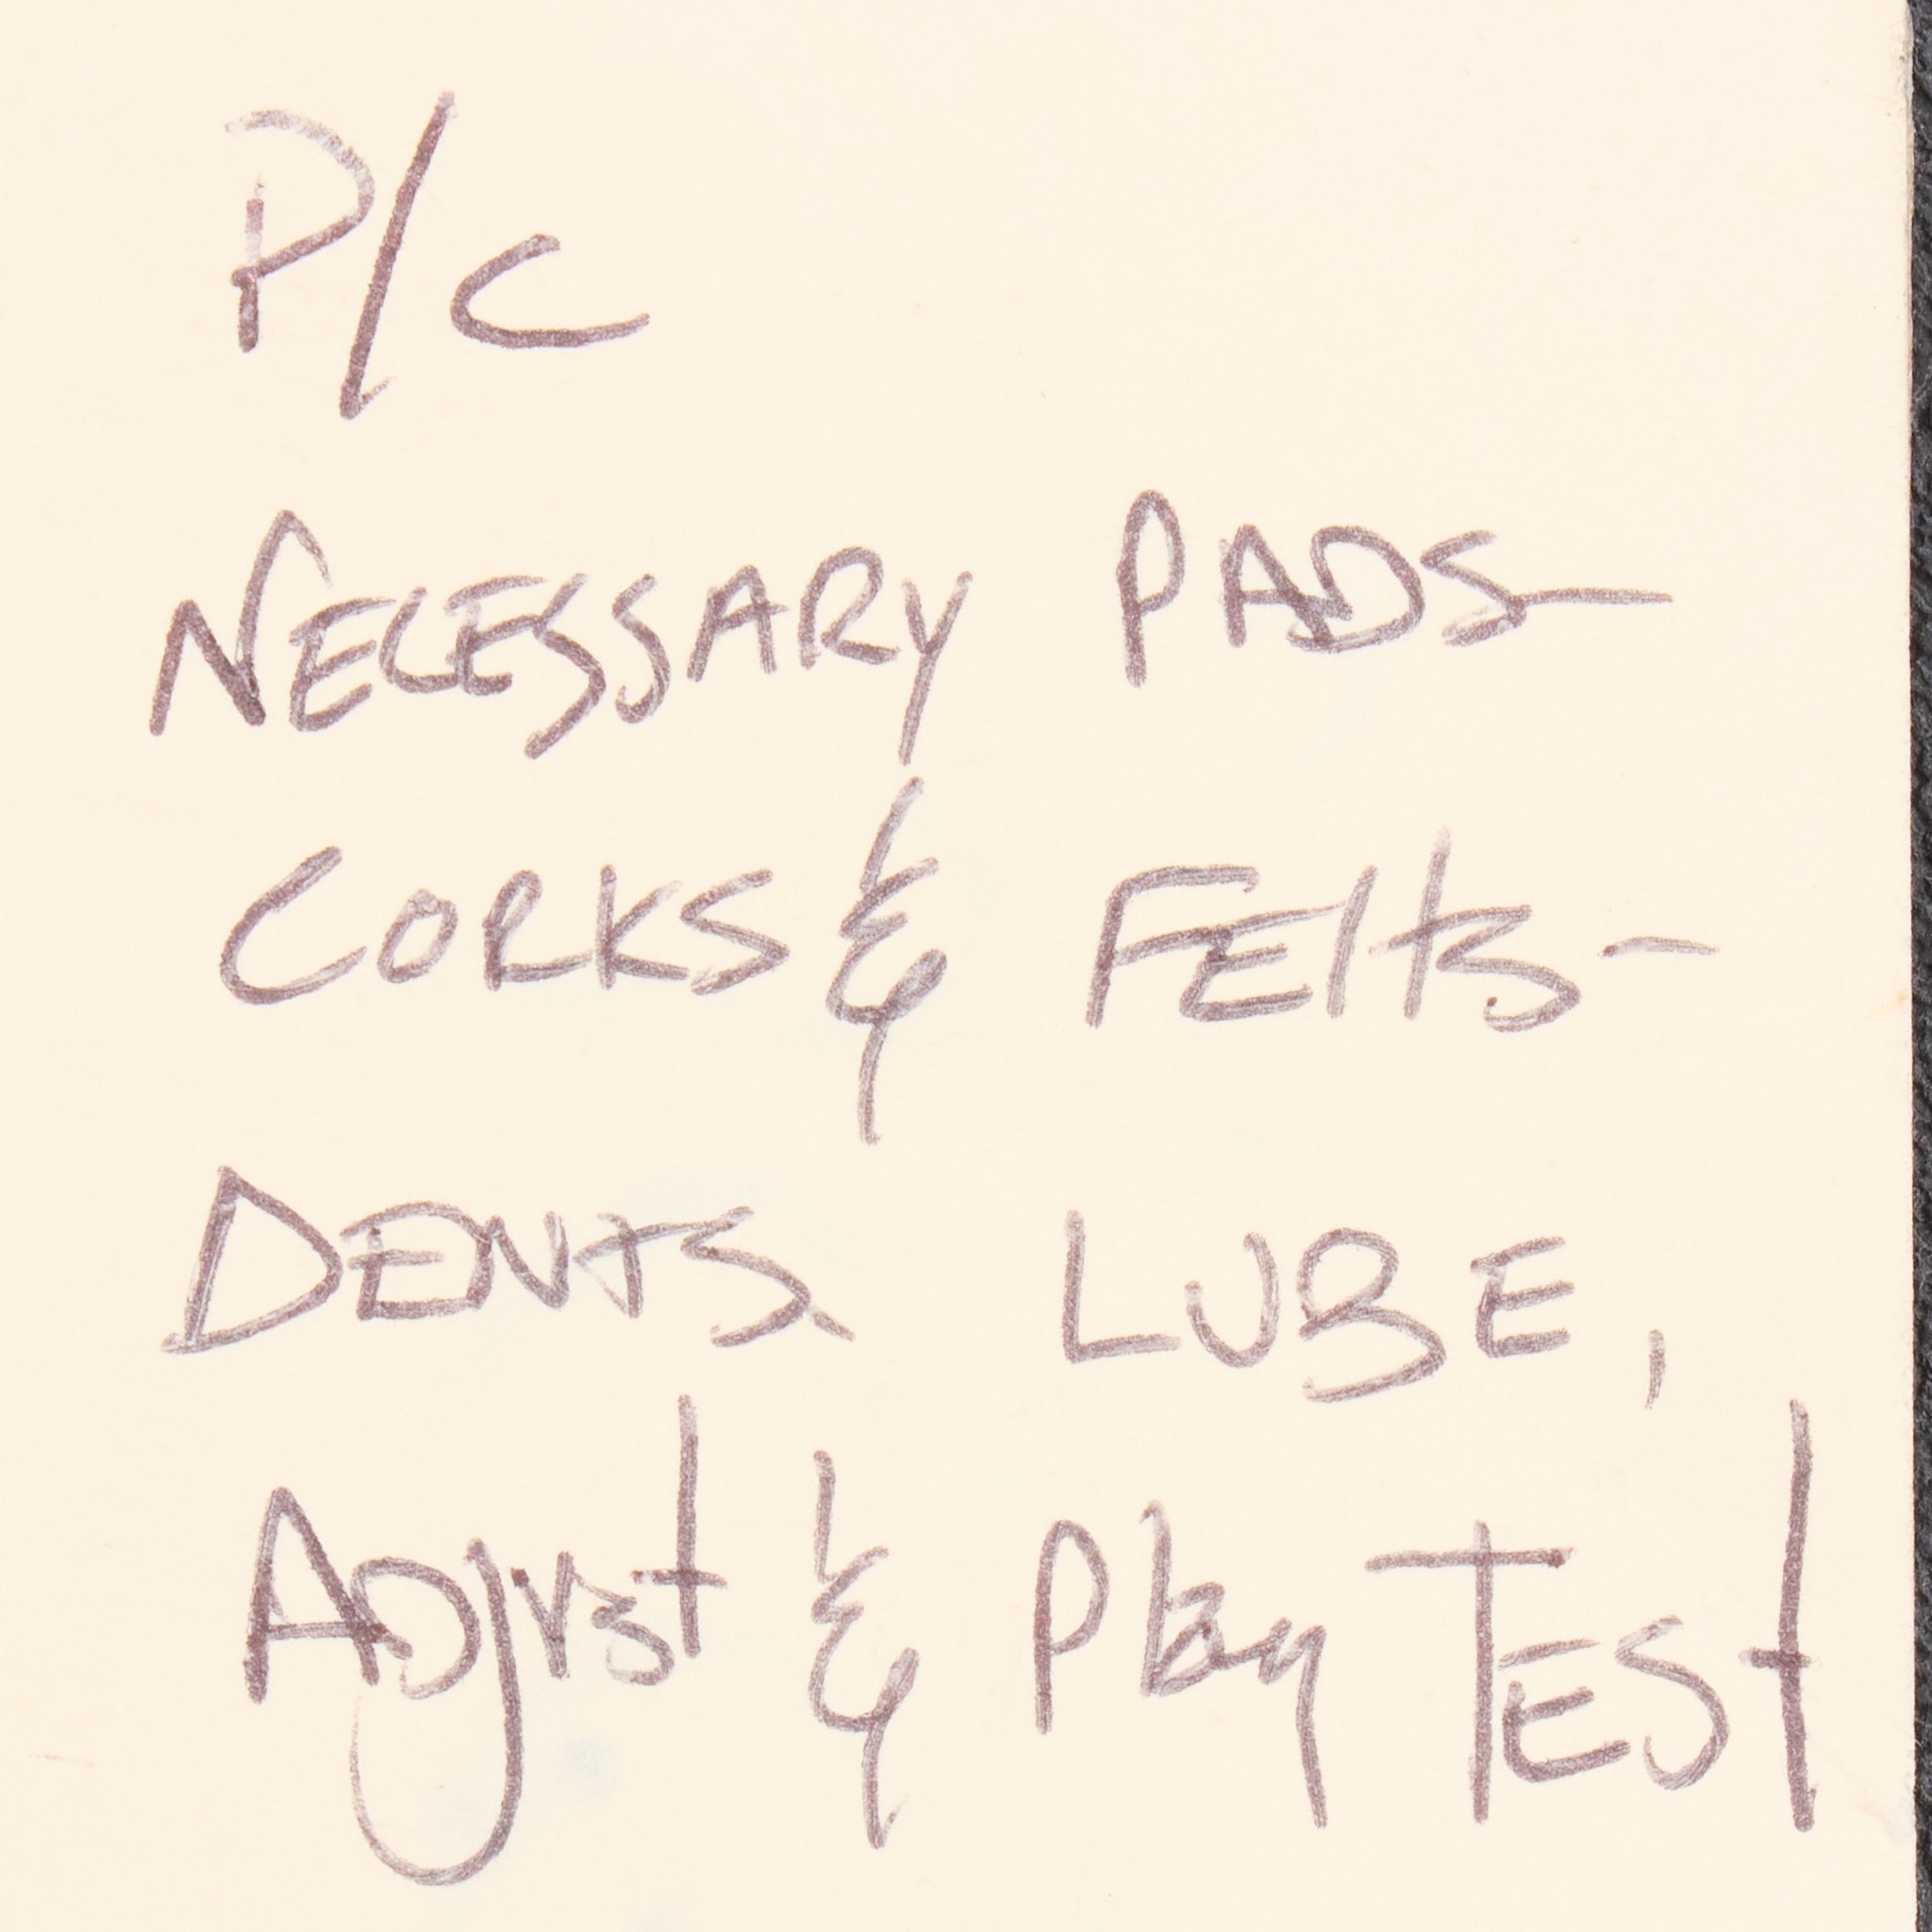 P/C
NECESSARY PADS-
CORKS & FElts-
DENTS LUBE,
ADjust & Play TESt